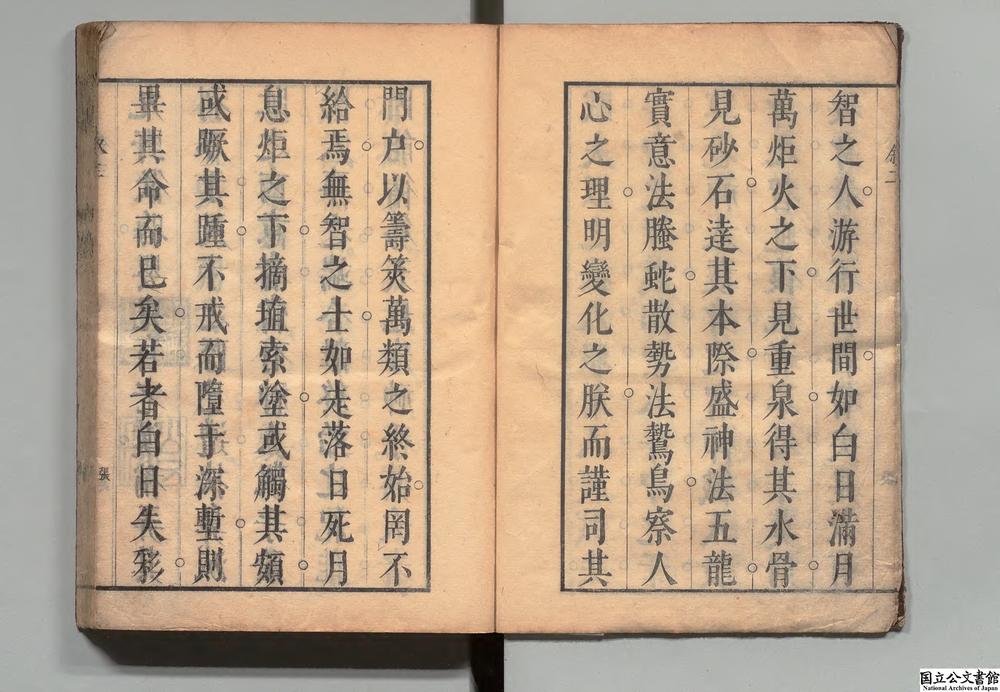 智之人游行世間如白日滿月
萬炬火之下見重泉得其水骨
見砂石達其本際盛神法五龍
實意法螣蛇散勢法鷙鳥察人
心之理明變化之朕而謹司其
門戶以籌筴萬類之終始罔不
給焉無智之士如走落日死月
息炬之下摘埴索塗或觸其頞
或蹶其踵不戒而隳于深塹則
畢其命而已矣若者白日失彩
張
国立公文書館
National Archives of Japan